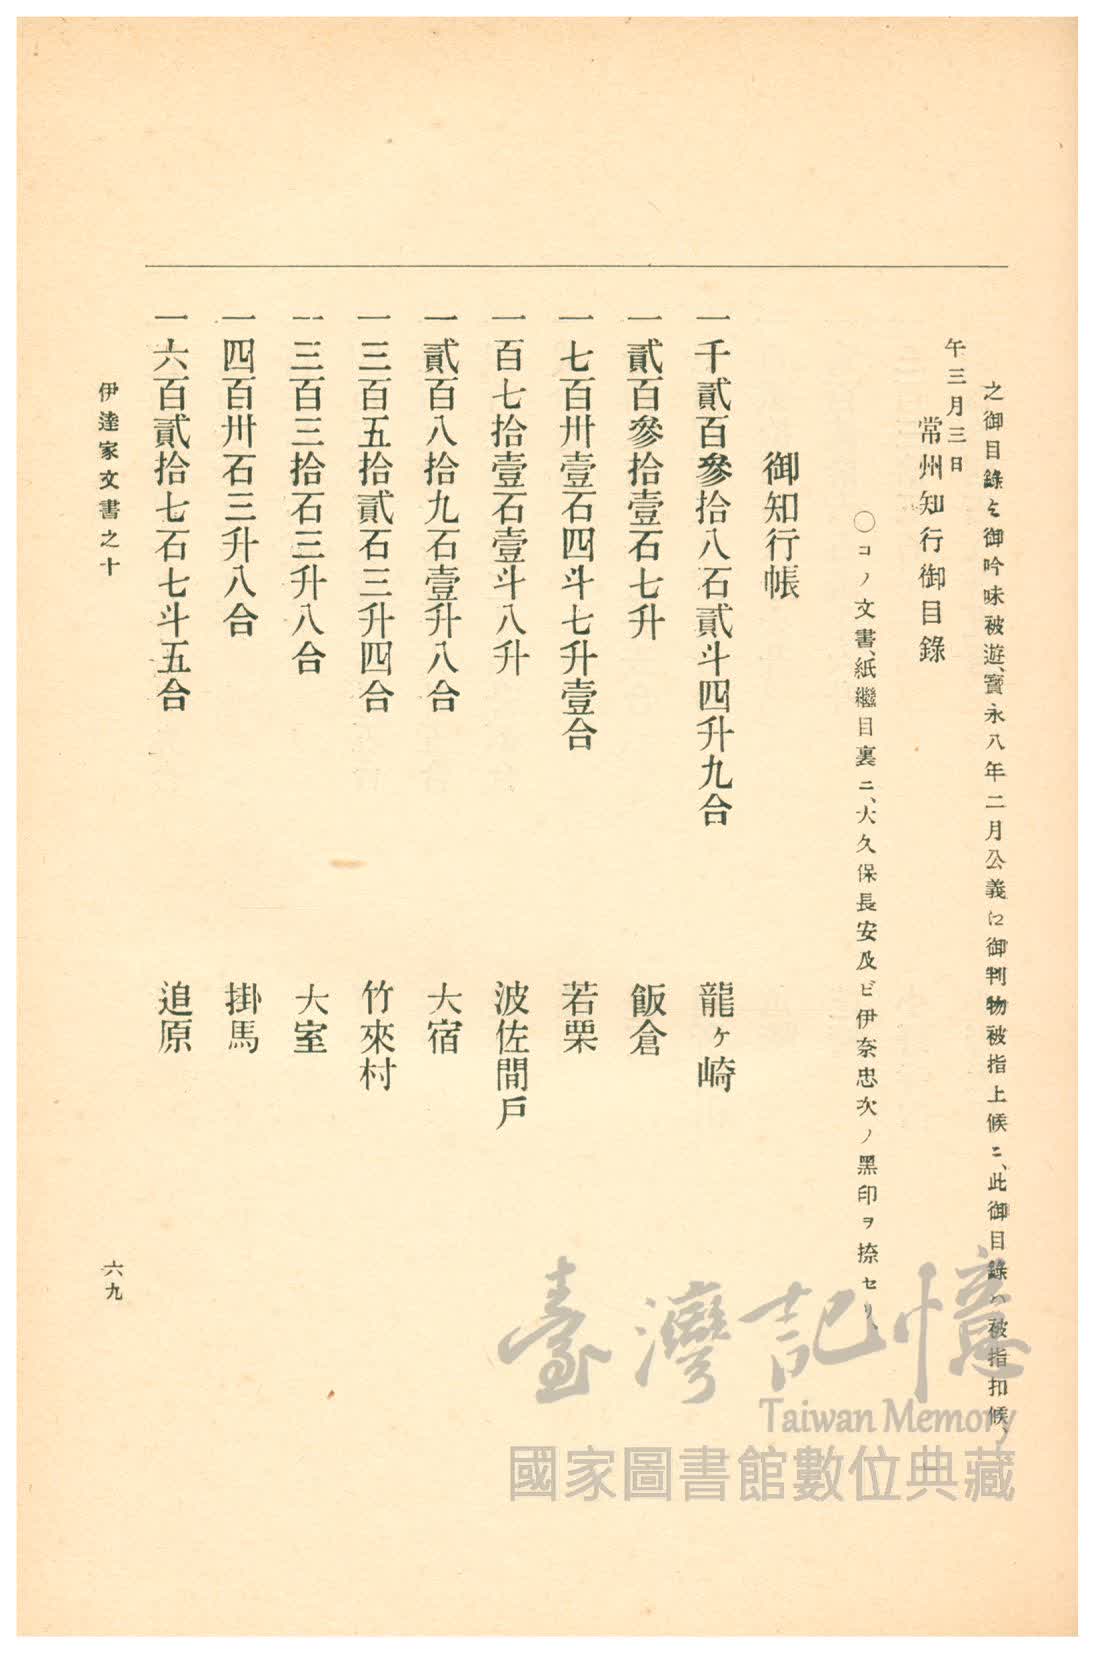 之御目錄を御吟味被遊、寶永八年二月公義江御判物被指上候ニ、此御目錄ハ被指扣候、
午三月三日
常州知行御目錄
○コノ文書、紙繼目裏ニ、大久保長安及ビ伊奈忠次ノ黑印ヲ捺セリ、
御知行帳
一千貳百參拾八石貳斗四升九合　龍ヶ崎
一貳百參拾壹石七升　飯倉
一七百卅壹石四斗七升壹合　若栗
一百七拾壹石壹斗八升　波佐間戶
一貳百八拾九石壹升八合　大宿
一三百五拾貳石三升四合　竹來村
一三百三拾石三升八合　大室
一四百卅石三升八合　掛馬
一六百貳拾七石七斗五合　追原
伊達家文書之十
六九
臺灣記憶
Taiwan Memory
國家圖書館數位典藏